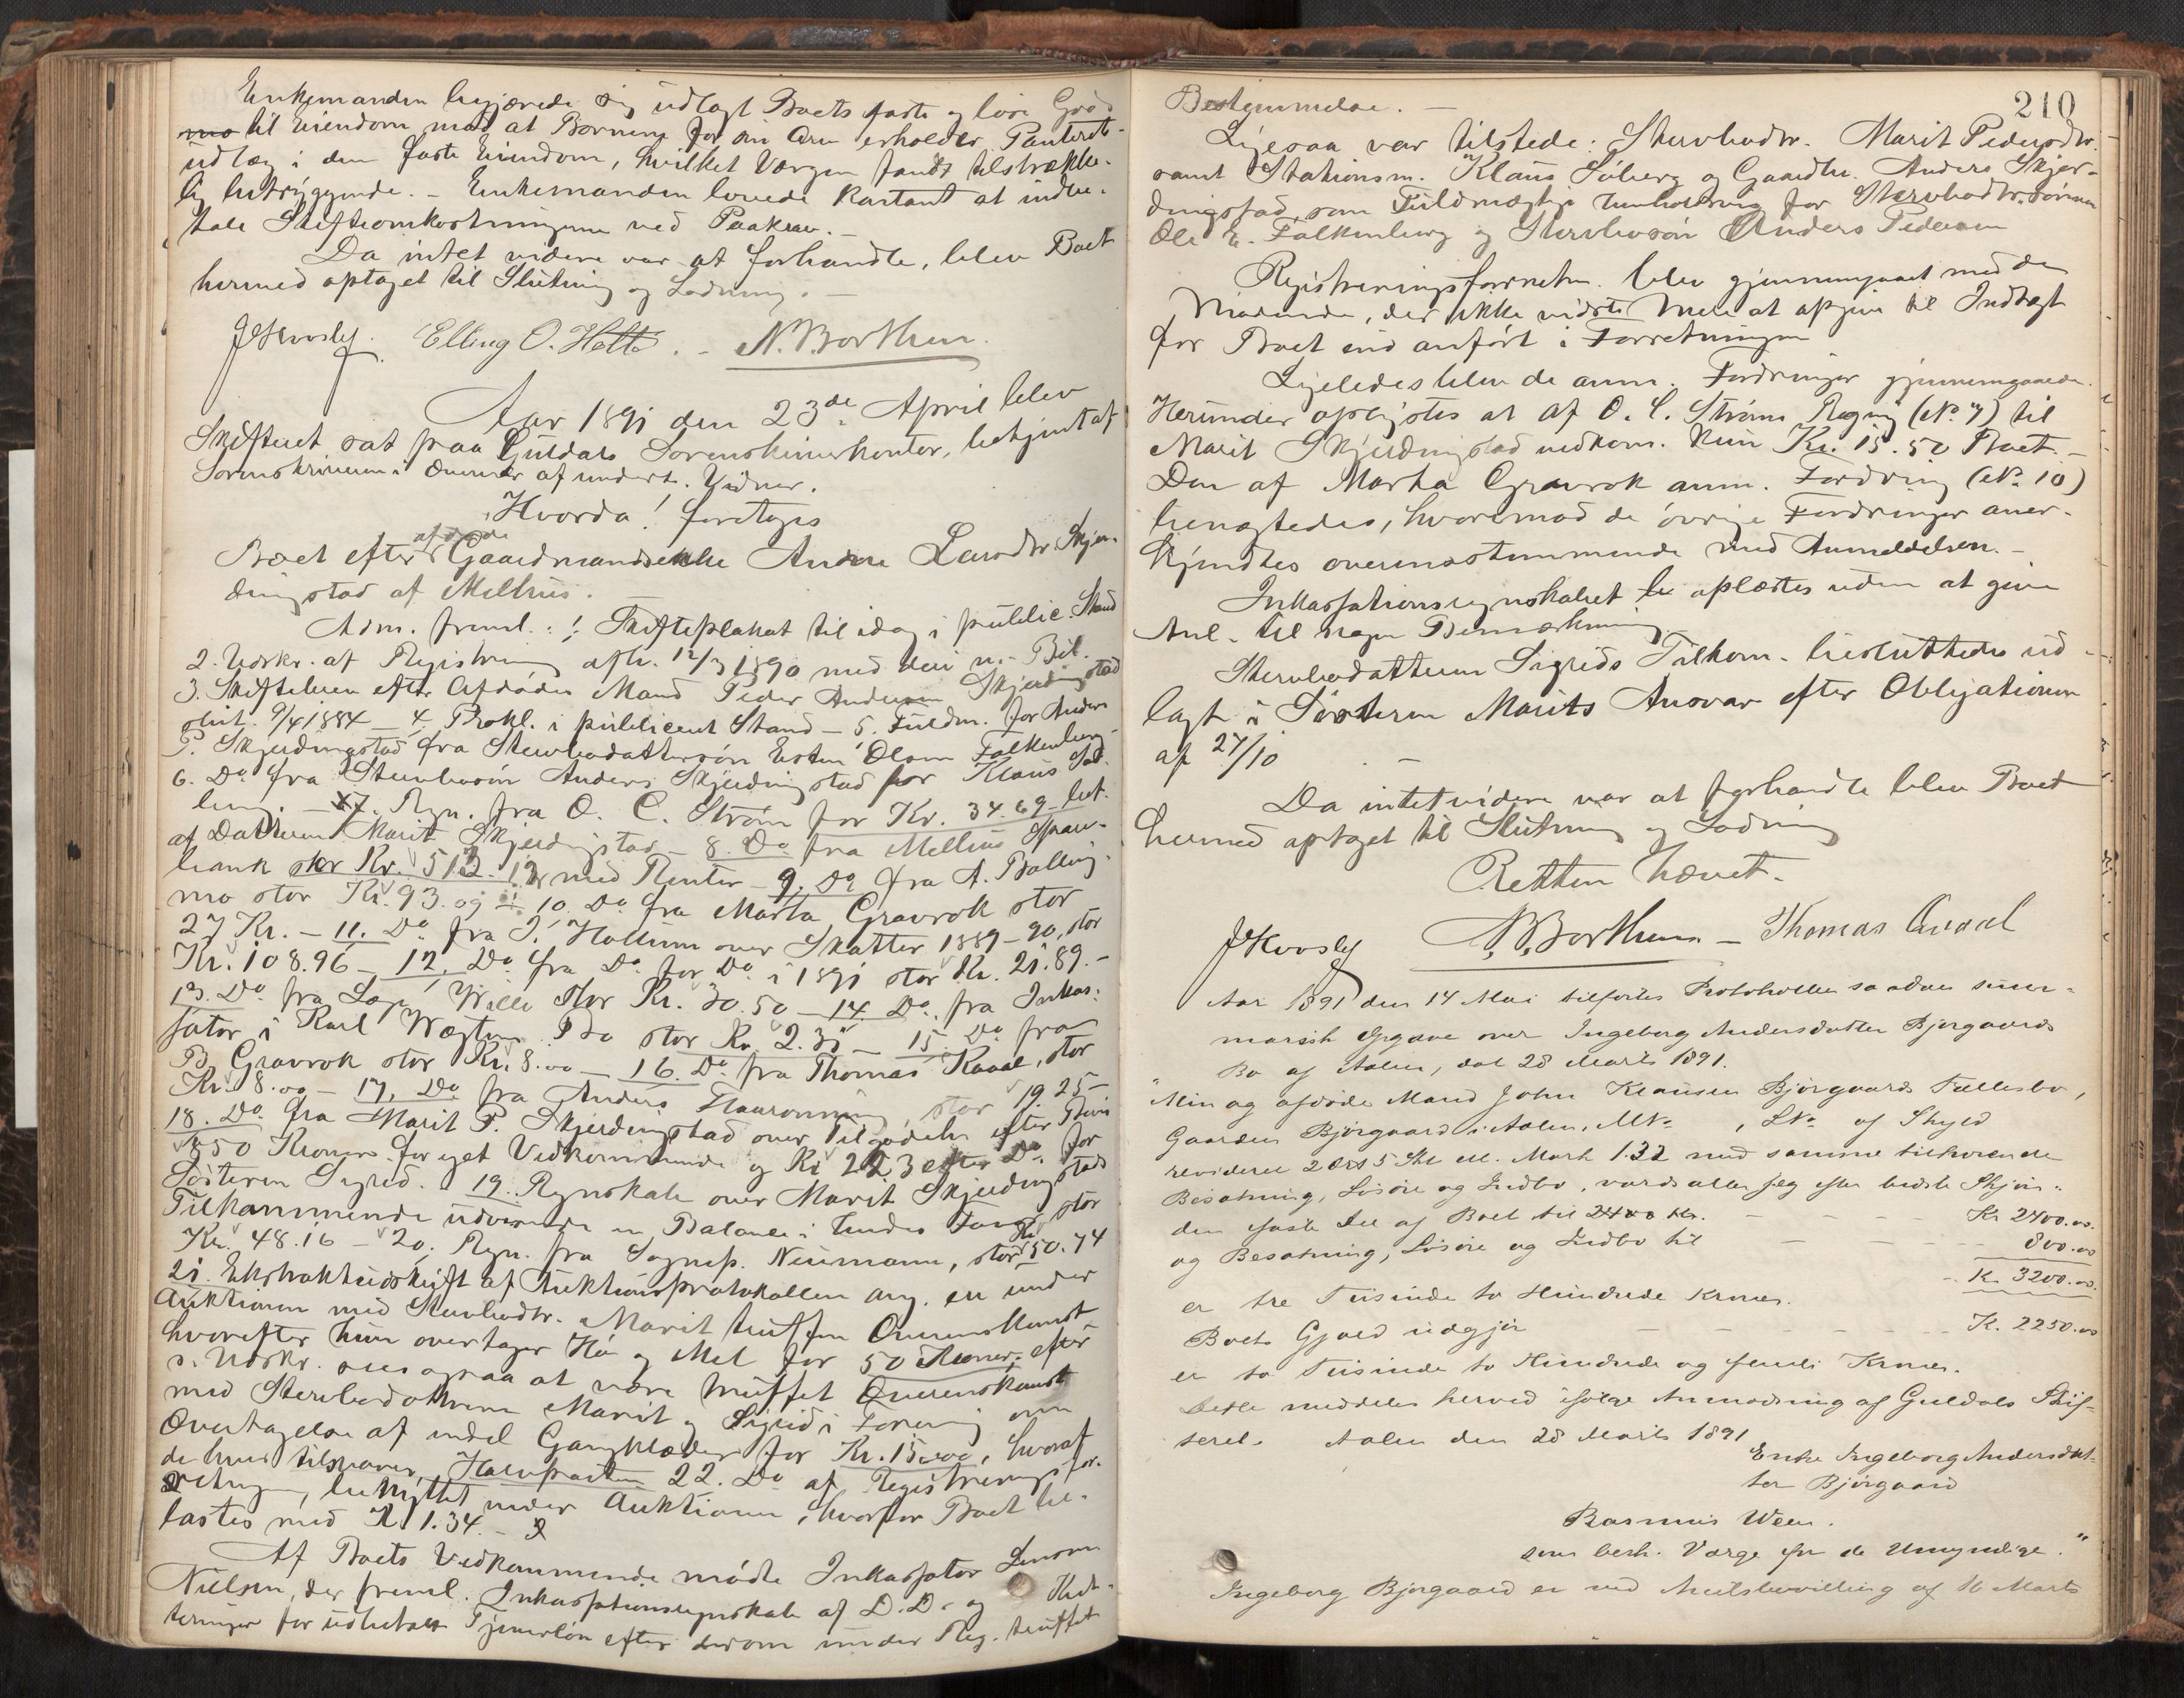 Enkemanden begjærede sig udlagt Boets faste og løse Gods
til Eiendom mod at Børnene for sin Arv erholder Panteret-
udlæg i den faste Eiendom, hvilket Værgen fandt tilstrække-
lig betryggende. - Enkemanden lovede kontant at indbe-
tale Skifteomkostningerne ved Paakrav. -
Da intet videre var at forhandle, blev Boet
hermed optaget til Slutning og Lodning. -
Elling O. Holte. - N. Borthen.
Aar 1891 den 23de April blev
Skifteret sat paa Guldals Sorenskriverkontor, betjent af
Sorenskriveren i Overvær af undert. Vidner.
Hvorda! foretoges
Boet efter afdøde Gaardmandsenke Anne Larsdtr Skjer-
dingstad af Melhus.
Adm. freml.: 1. Skifteplakat til idag i public. Stand
2. Udskr. af Registrering afh. 12/3 1890 med deri n. Bil.
3. Skiftebrev efter Afdødes Mand Peder Andersen Skjerdingstad
slut. 9/4 1884 - 4. Prokl. i publiceret Stand - 5. Fuldm. for Anders
P. Skjerdingstad fra Stervbodattersøn Esten Olsen Falkenberg
6. Do fra Stervbosøn Anders Skjerdingstad for Klaus Sø-
berg. - 7. Regn. fra O. C. Strøm for Kr. 34.69 bet.
af Datteren Marit Skjerdingstad - 8. Do fra Melhus Spare-
bank stor Kr. 512.12 med Renter - 9. Do fra A. Balling-
mo stor Kr. 93.09 - 10. Do fra Marta Gravrok stor
27 Kr. - 11. Do fra J. Hollum over Skatter 1889-90, stor
Kr. 108.96 - 12. Do fra Do for Do i 1891 stor Kr. 21.89. -
13. Do fra Læge Wille stor Kr. 30.50 - 14. Do fra Inkas-
sator i Karl Stor Kr. 2.35 - 15. Do fra
B. Gravrok stor Kr. 8.00 - 16. Do fra Thomas Kvaal, stor
Kr. 8.00 - 17. Do fra Anders Flaarønning, stor 19.25 -
18. Do fra Marit P. Skjerdingstad over Tilgodeh. efter Bevis
850 Kroner for eget Vedkommende og Kr 223 efter Do for
Søsteren Sigrid. 19. Regnskab over Marit Skjerdingstads
Tilkommende udvisende en Balance i hendes Favør stor
Kr. 48.16 - 20. Regn. fra Sognep. Neumann, stor Kr 50.74
21. Ekstraktudskrift af Auktionsprotokollen ang. en under
Auktionen med Stervbodtr. Marit truffen Overenskomst
hvorefter hun overtager Hø og Mel for 50 Kroner, efter
s. Udskr. sees ogsaa at være truffet Overenskomst
med Stervbodøttrene Marit og Sigrid i Forening om
Overtagelse af endel Gangklæder for Kr. 15.00, hvoraf
de hver tilsvarer Halvparten 22. Do af Registreringsfor-
retningen, benyttet under Auktionen, hvorfor Boet be-
lastes med Kr 1.34. -
Af Boets Vedkommende mødte Inkassator Simon
Nielsen, der freml. Inkassationsregnskab af D.D. og Kvit-
teringer for udbetalt Tjenerløn efter derom under Reg. truffet
210
Bestemmelse. -
Ligesaa var tilstede: Stervbodtr. Marit Pedersdtr.
samt Stationsm. Klaus Søberg og Gaardbr. Anders Skjer-
dingstad, som Fuldmægtige henholdsvis for Stervbodtr.sønnen
Ole E. Falkenberg og Stervbosøn Anders Pedersen
Registreringsforretn. blev gjennemgaaet med de
Mødende, der ikke vidste mere at opgive til Indtægt
for Boet end anført i Forretningen
Ligeledes blev de anm. Fordringer gjennemgaaede.
Herunder oplystes at af O. C. Strøms Regning (No 7) til
Marit Skjerdingstad vedkom. kun Kr. 15.50 Boet. -
Den af Marta Gravrok anm. Fordring (No 10)
benægtedes, hvorimod de øvrige Fordringer aner-
kjendtes overensstemmende med Anmeldelsen. -
Inkassationsregnskabet oplæstes uden at give
Anl. til nogen Bemærkning
Stervbodatteren Sigrids Tilkom. besluttedes ud-
lagt i Søsteren Marits Ansvar efter Obligationen
af 27/10 -
Da intet videre var at forhandle blev Boet
hermed optaget til Slutning og Lodning
Retten hævet.
N. Borthen - Thomas Qvaal
Aar 1891 den 14 Mai tilførtes Protokollen saadan summa-
marisk Opgave over Ingeborg Andersdatter Bjørgaards
Bo af Aalen, dat 28 Marts 1891.
"Min og afdøde Mand John Klausen Bjørgaards Fællesbo,
Gaarden Bjørgaard i Aalen, MNo , LNo af Skyld
revideret 2 Ort 5 Skl ell. Mark 1.32 med samme tilhørende
Besætning, Løsøre og Indbo, værdsætter jeg efter bedste Skjøn:
den faste Del af Boet til 2400 Kr. - - - - Kr 2400.00.
og Besætning, Løsøre og Indbo til - - - - 800.00
- K. 3200.00.
er tre Tusinde to Hundrede Kroner.
Boets Gjæld udgjør - - - - - K. 2250.00
er to Tusinde to Hundrede og femti Kroner.
Dette meddeles herved ifølge Anmodning af Guldals Skif-
teret. Aalen den 28 Marts 1891
Enke Ingeborg Andersdat-
ter Bjørgaard
Rasmus Ween.
som besk. Værge for de Umyndige."
Ingeborg Bjørgaard er ved Amtsbevilling af 16 Marts